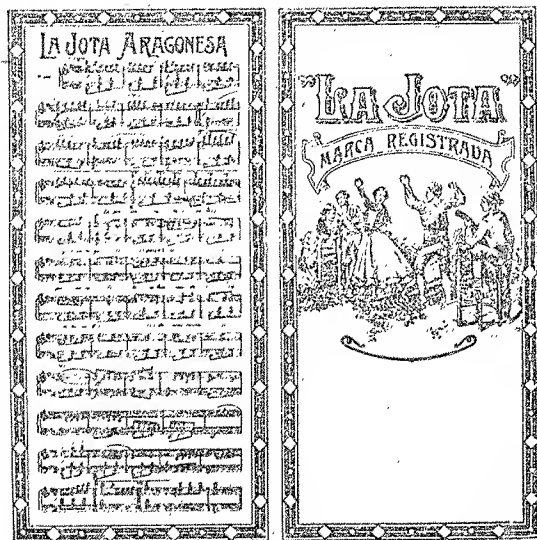 LA JOTA ARAGONESA
"LA JOTA"
MARCA REGISTRADA